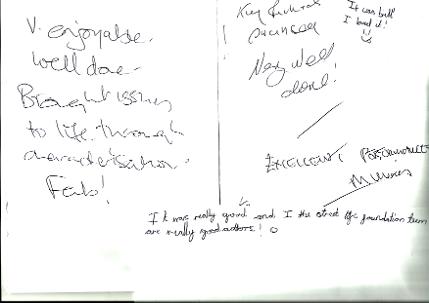 V. enjoyable.
Well done.
Brought issues
to life through
characterisation.
Fab!
Key
It was brill
I loved it!
Very well
done!
Excellent
It was really good and I the street life foundation team
are really good actors!